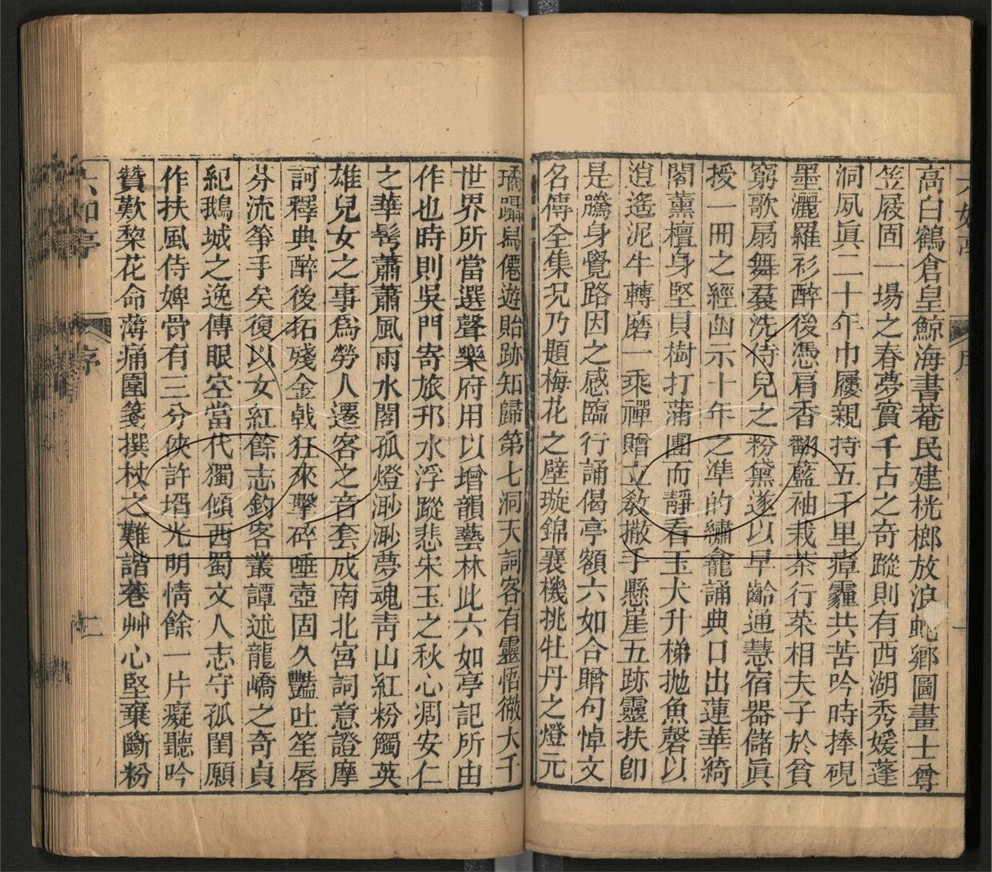 六如亭
序
一
高白鶴倉皇鯨海書菴民建桄榔放浪蛇鄉圖畫士尊
笠屐固一場之春夢實千古之奇蹤則有西湖秀媛蓬
洞夙眞二十年巾屨親持五千里瘴霾共苦吟時捧硯
墨灑羅衫醉後憑肩香翻藍袖栽茶行菜相夫子於貧
窮歌扇舞羣洗侍兒之粉黛遂以早齡通慧宿器儲眞
授一冊之經函示十年之準的繡龕誦典口出蓮華綺
閣薰檀身堅貝樹打蒲團而靜看玉犬升梯抛魚磬以
逍遙泥牛轉磨一乘禪贈立敎撤手懸崖五跡靈扶卽
是騰身覺路因之感臨行誦偈亭額六如合贈句悼文
名傳全集况乃題梅花之壁璇錦襄機挑牡丹之燈元
璚躡舄僊遊貽跡知歸第七洞天詞客有靈悟徹大千
世界所當選聲樂府用以增韻藝林此六如亭記所由
作也時則吳門寄旅邗水浮蹤悲宋玉之秋心凋安仁
之華髩蕭蕭風雨水閣孤燈渺渺夢魂靑山紅粉觸英
雄兒女之事爲勞人遷客之音套成南北宮詞意證摩
訶釋典醉後拓殘金戟狂來擊碎唾壺固久豔吐笙唇
芬流箏手矣復以女紅餘志釣客叢譚述龍嶠之奇貞
紀鵝城之逸傳眼空當代獨傾西蜀文人志守孤閨願
作扶風侍婢骨有三分俠許壻光明情餘一片癡聽吟
贊歎黎花命薄痛圍箋撰杖之難諧菤艸心堅棄斷粉
六如亭
序
二